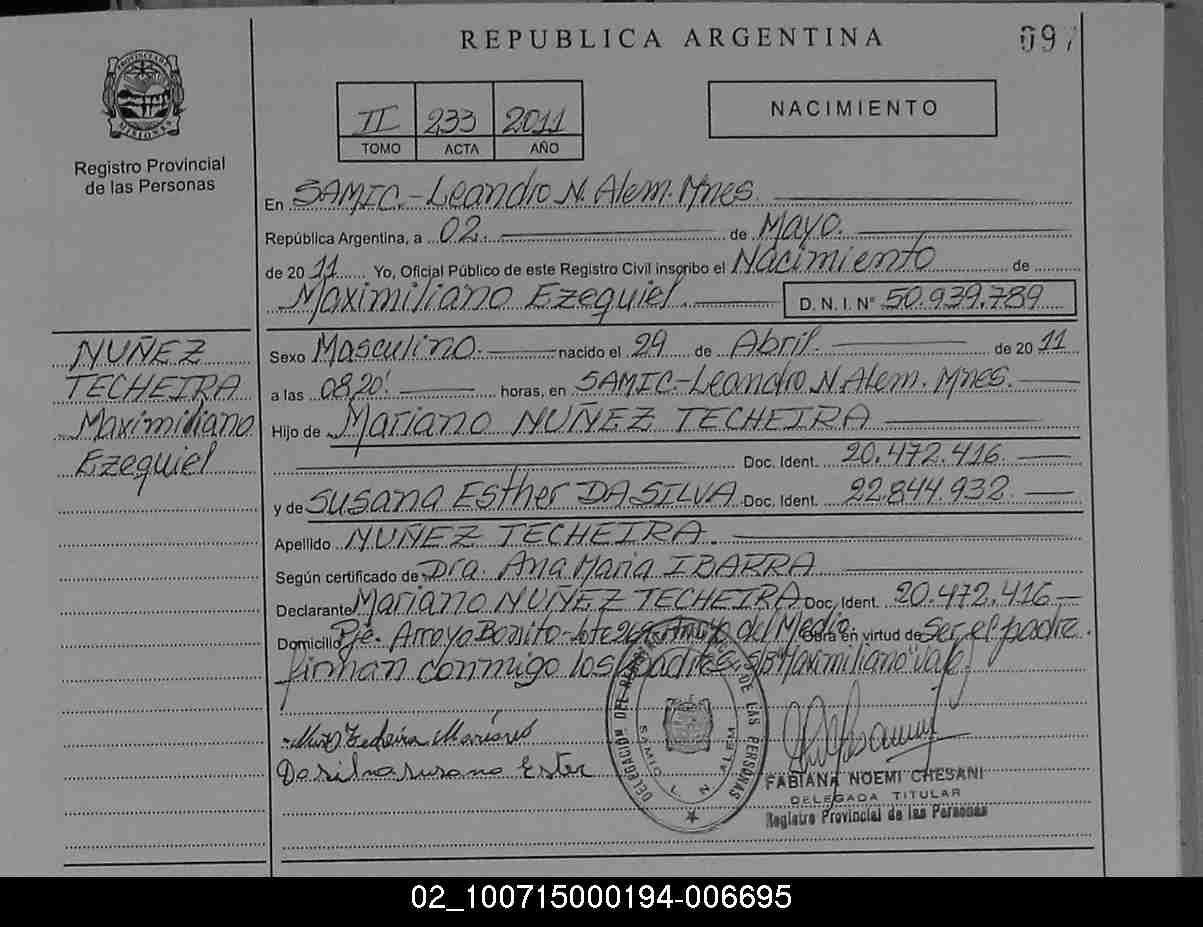 REPUBLICA ARGENTINA
097
PROVINCIA DE MISIONES
Registro Provincial
de las Personas
II 233 2011
TOMO ACTA AÑO
NACIMIENTO
En SAMIC.-Leandro N. Alem. Mnes.
República Argentina, a 02. de Mayo.
de 2011 Yo, Oficial Público de este Registro Civil inscribo el Nacimiento de
Maximiliano Ezequiel. D. N. I. Nº 50.939.789
NUÑEZ
TECHEIRA
Maximiliano
Ezequiel
Sexo Masculino. nacido el 29 de Abril. de 2011
a las 08,20! horas, en SAMIC.-Leandro N. Alem. Mnes.
Hijo de Mariano NUÑEZ TECHEIRA
Doc. Ident. 20.472.416.
y de Susana Esther DA SILVA Doc. Ident. 22.844.932.
Apellido NUÑEZ TECHEIRA.
Según certificado de Dra. Ana Maria IBARRA
Declarante Mariano NUÑEZ TECHEIRA Doc. Ident. 20.472.416
Domicilio Pje. Arroyo Bonito-Lote Aroyo del Medio. Obra en virtud de Ser el padre.
firman conmigo los padres. s/b "Maximiliano" Vale!
Techeira Mariano
Da silva susana Ester
DELEGACIÓN DEL REGISTRO DE LAS PERSONAS
SAMIC L. N. ALEM
FABIANA NOEMI CHESANI
DELEGADA TITULAR
Registro Provincial de las Personas
02_100715000194-006695